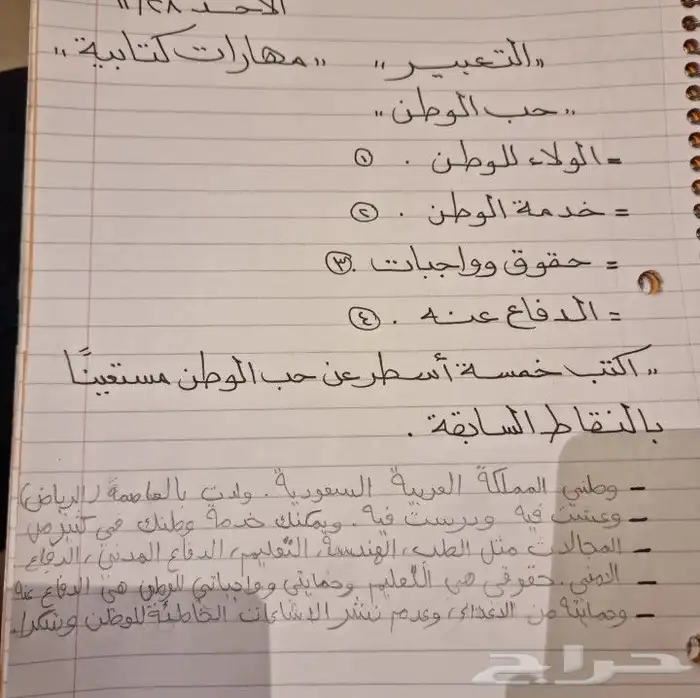 الأحد ٢٨/١١
"التعبير" "مهارات كتابية"
"حب الوطن"
= الولاء للوطن . ①
= خدمة الوطن . ②
= حقوق وواجبات . ③
= الدفاع عنه . ④
"اكتب خمسة أسطر عن حب الوطن مستعينًا
بالنقاط السابقة .
- وطني المملكة العربية السعودية . ولدت بالعاصمة (الرياض)
- وعشت فيه ودرست فيه . ويمكنك خدمة وطنك في كثير من
- المجالات مثل الطب، الهندسة، التعليم، الدفاع المدني، الدفاع
- الامني . حقوقي هي التعليم وحمايتي وواجباتي للوطن هي الدفاع عنه
- وحمايته من الاعداء، وعدم نشر الاشاعات الخاطئة للوطن وشكرا.
حراج